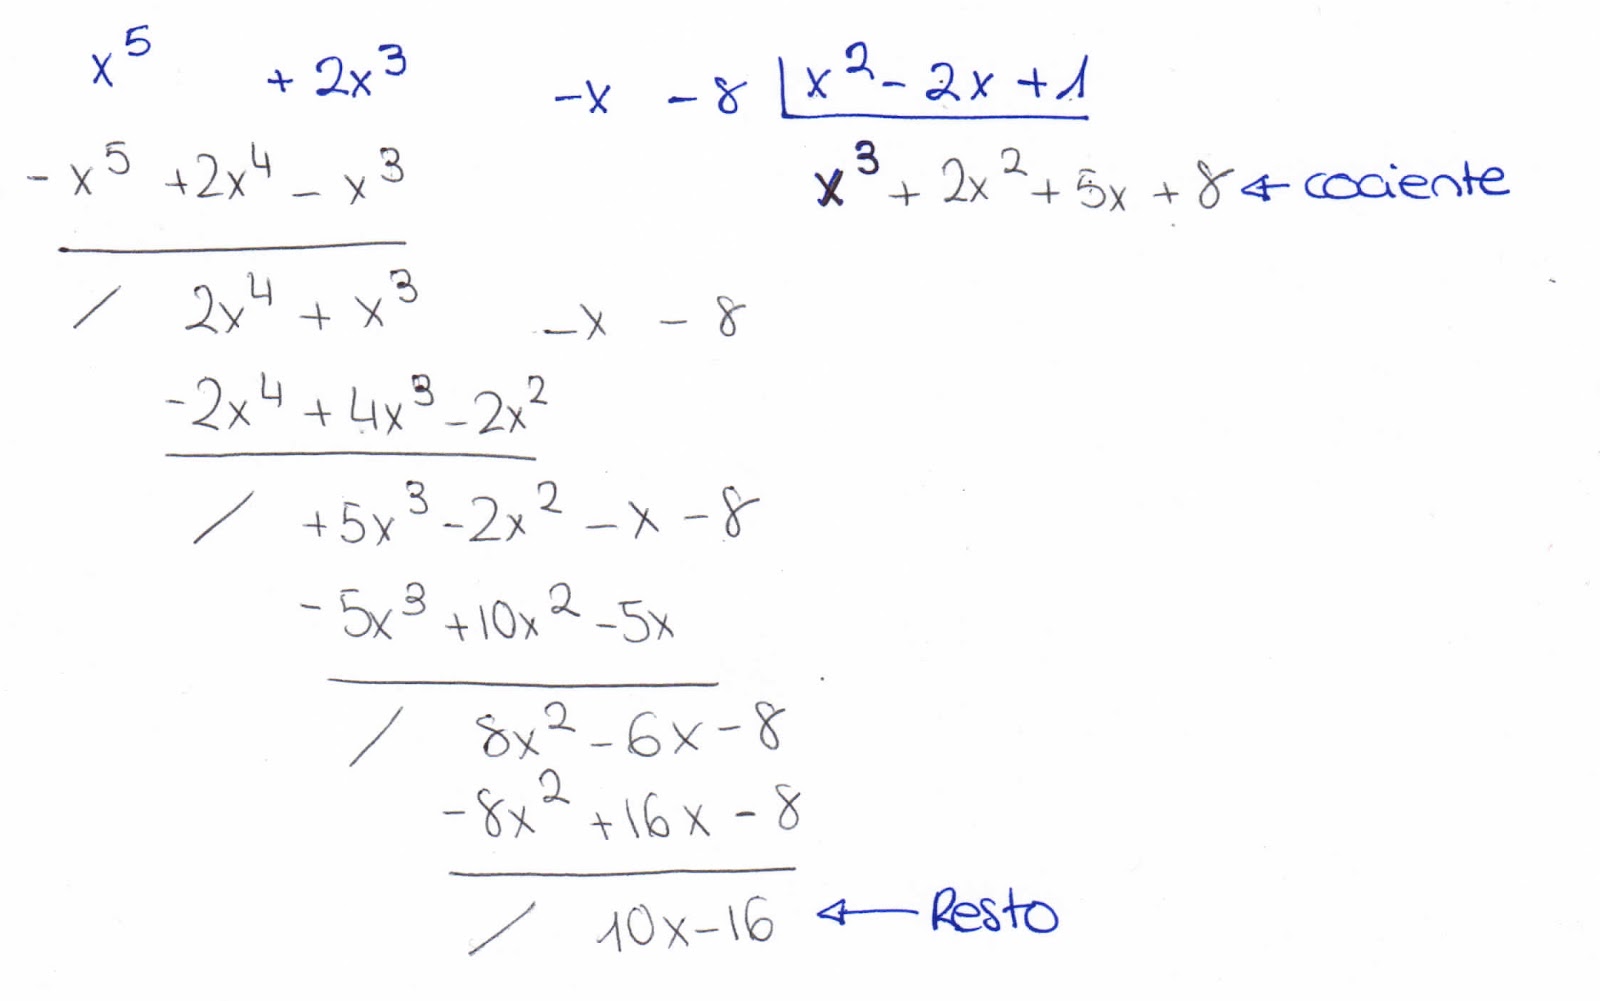 x⁵ + 2x³ -x - 8 | x² - 2x + 1
- x⁵ + 2x⁴ - x³ x³ + 2x² + 5x + 8 ← cociente
/ 2x⁴ + x³ -x - 8
-2x⁴ + 4x³ - 2x²
/ +5x³ - 2x² - x - 8
- 5x³ + 10x² - 5x
/ 8x² - 6x - 8
-8x² + 16x - 8
/ 10x - 16 ← Resto